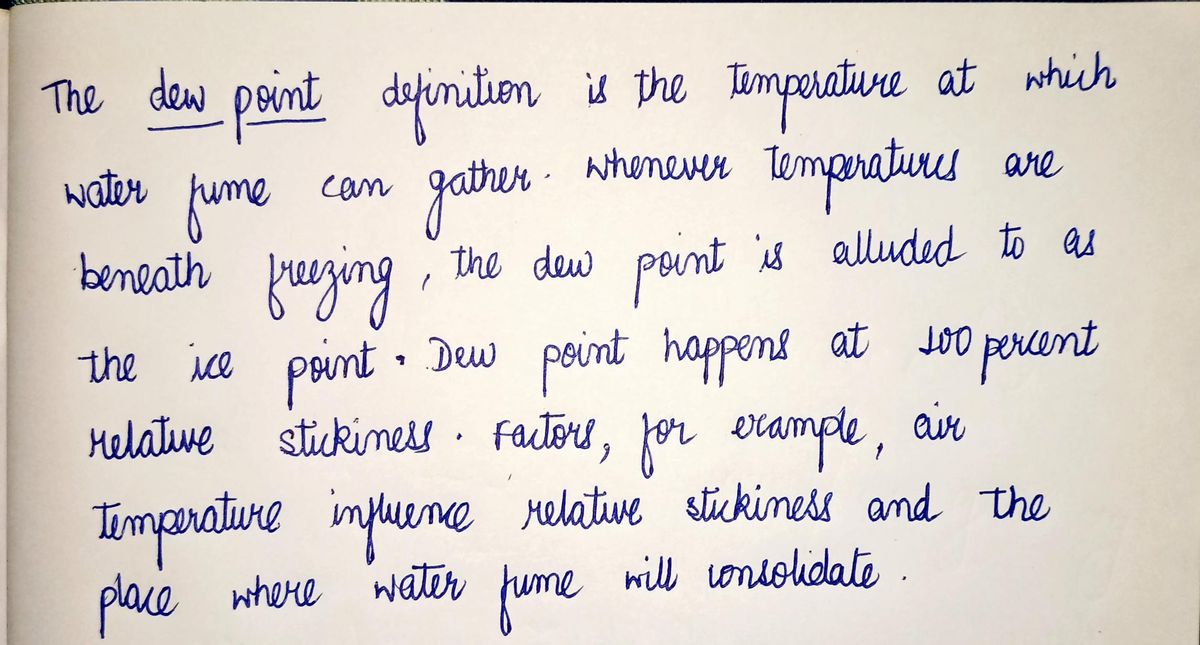 The dew point definition is the temperature at which
water fume can gather. whenever temperatures are
beneath freezing, the dew point is alluded to as
the ice point. Dew point happens at 100 percent
relative stickiness. Factors, for example, air
temperature influence relative stickiness and the
place where water fume will consolidate.